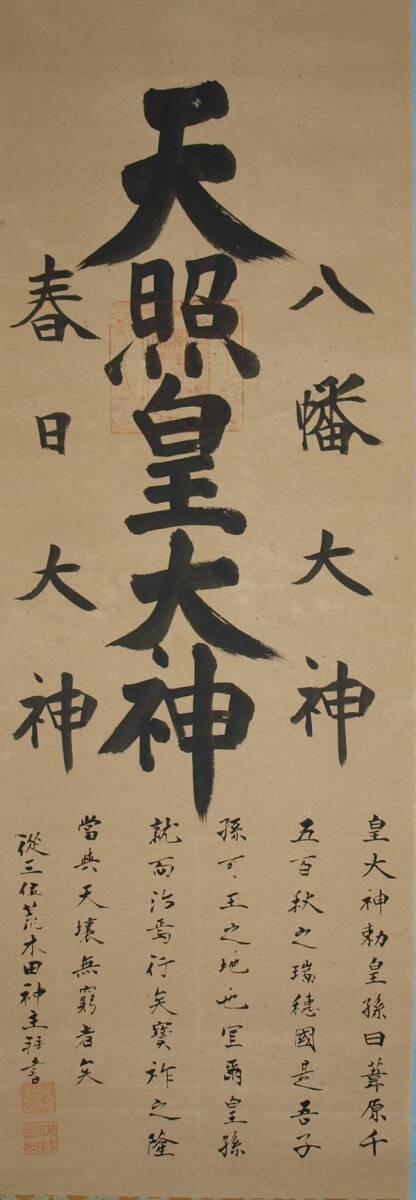 八幡大神
天照皇大神
春日大神
皇大神勅皇孫曰葦原千
五百秋之瑞穗國是吾子
孫可王之地也宜爾皇孫
就而治焉行矣寶祚之隆
當與天壤無窮者矣
從三位荒木田神主書